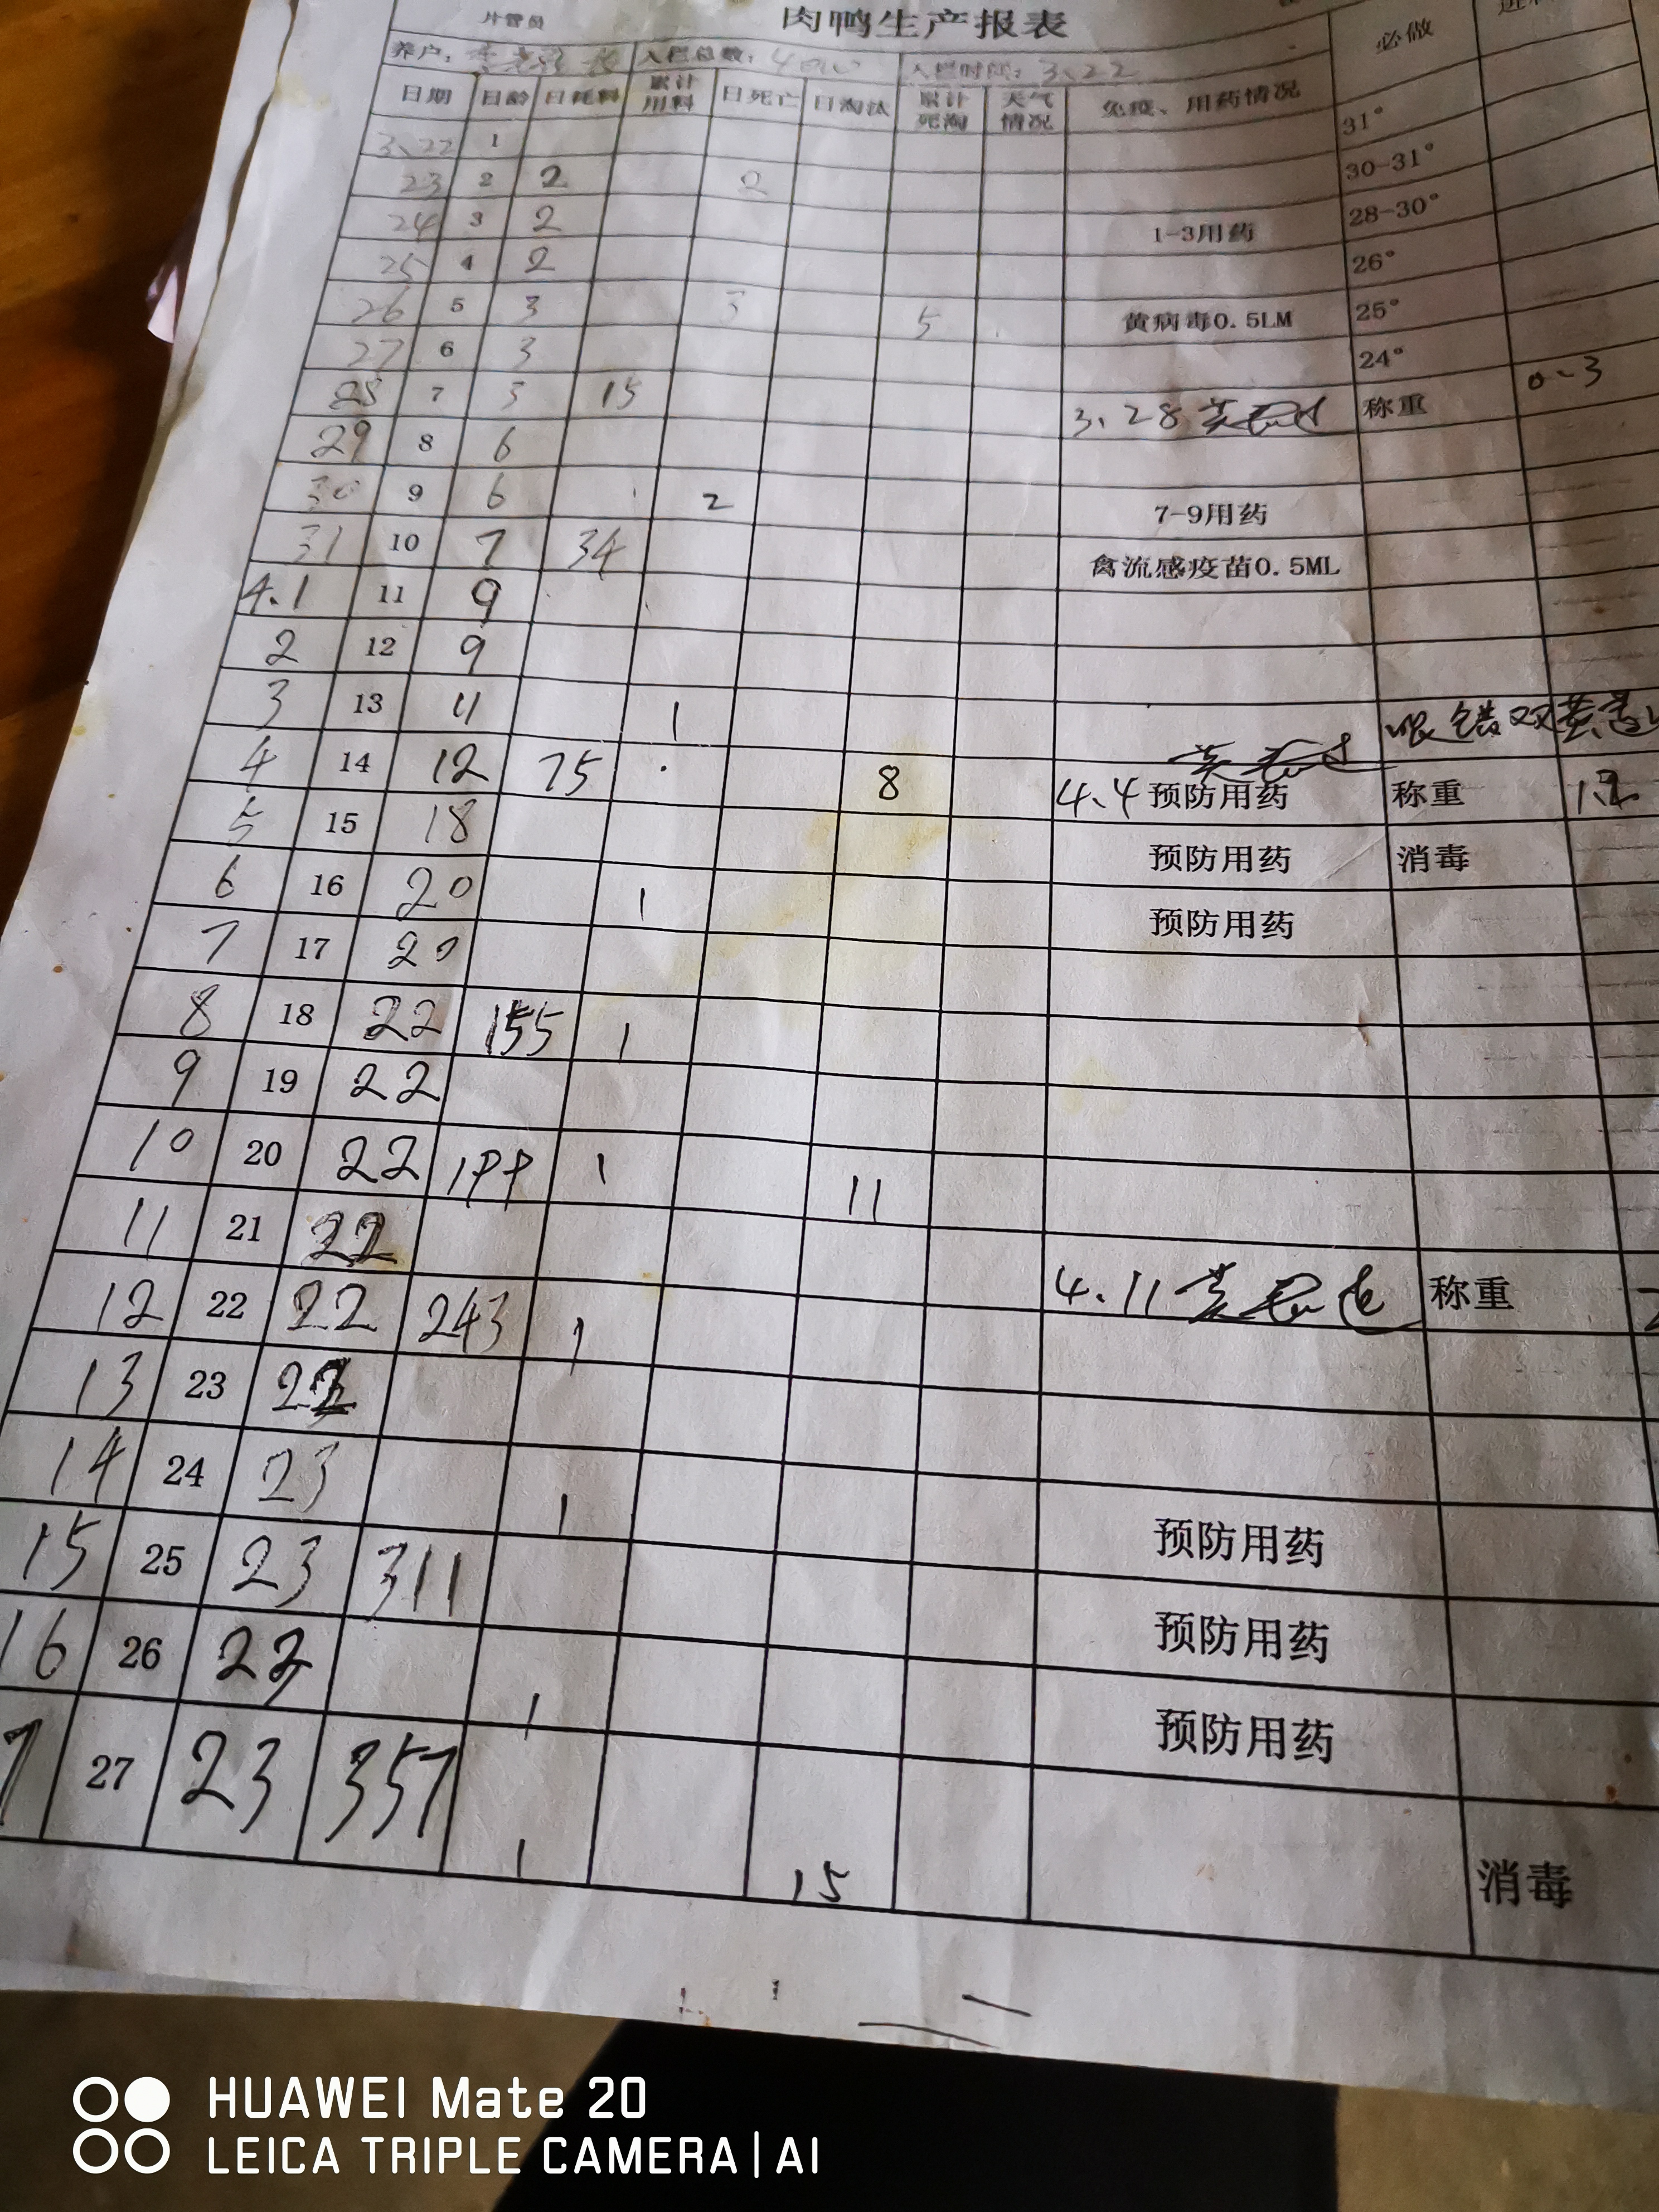 片管员 肉鸭生产报表 必做
养户: 入栏总数: 入栏时间: 3、22
日期 日龄 日耗料 累计用料 日死亡 日淘汰 累计死淘 天气情况 免疫、用药情况
3、22 1 31°
23 2 2 2 30-31°
24 3 2 1-3用药 28-30°
25 4 2 26°
26 5 3 3 5 黄病毒0.5LM 25°
27 6 3 24°
28 7 3 15 3、28 称重 0-3
29 8 6
30 9 6 2 7-9用药
31 10 7 34 禽流感疫苗0.5ML
4.1 11 9
2 12 9
3 13 11 1
4 14 12 75 8 4、4 预防用药 称重
5 15 18 预防用药 消毒
6 16 20 1 预防用药
7 17 20
8 18 22 155 1
9 19 22
10 20 22 199 1 11
11 21 22 4.11 称重
12 22 22 243 1
13 23 22
14 24 23 1 预防用药
15 25 23 311 预防用药
16 26 22 1 预防用药
7 27 23 357 1 15 消毒
HUAWEI Mate 20
LEICA TRIPLE CAMERA | AI